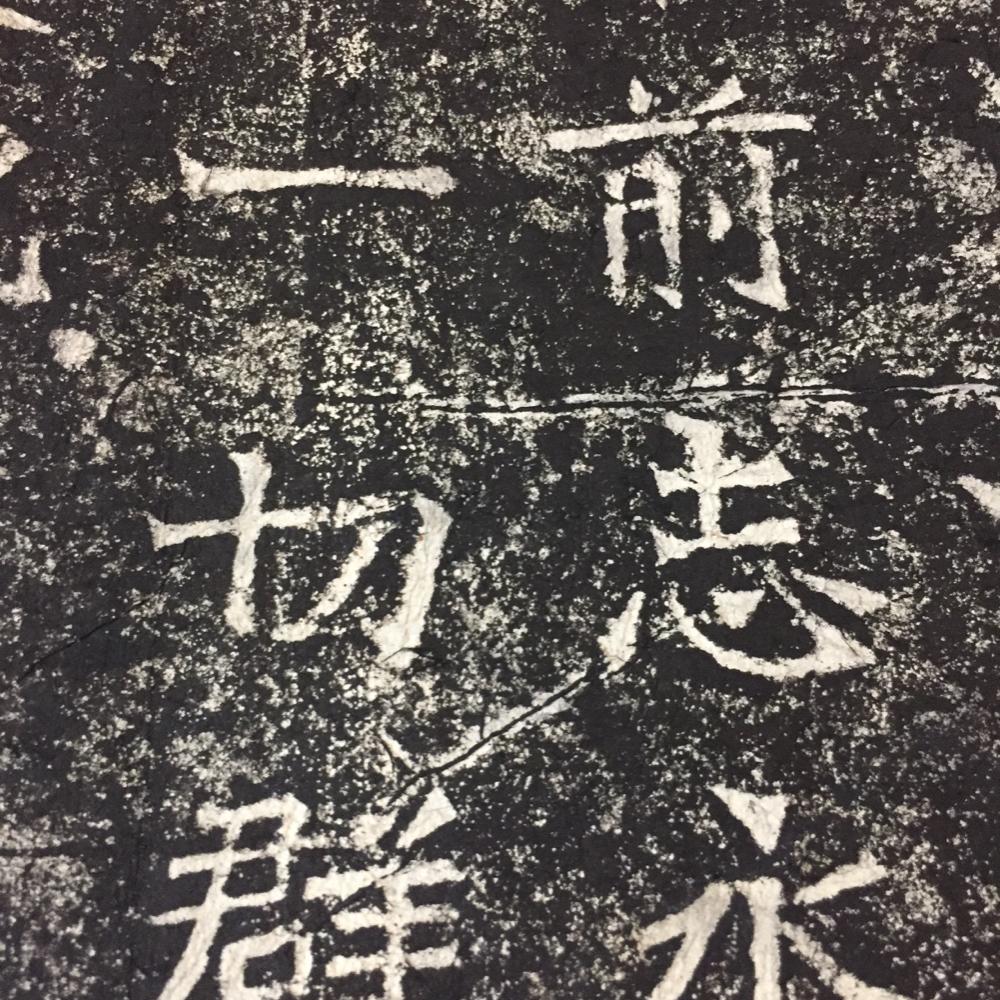 前志永
一切群